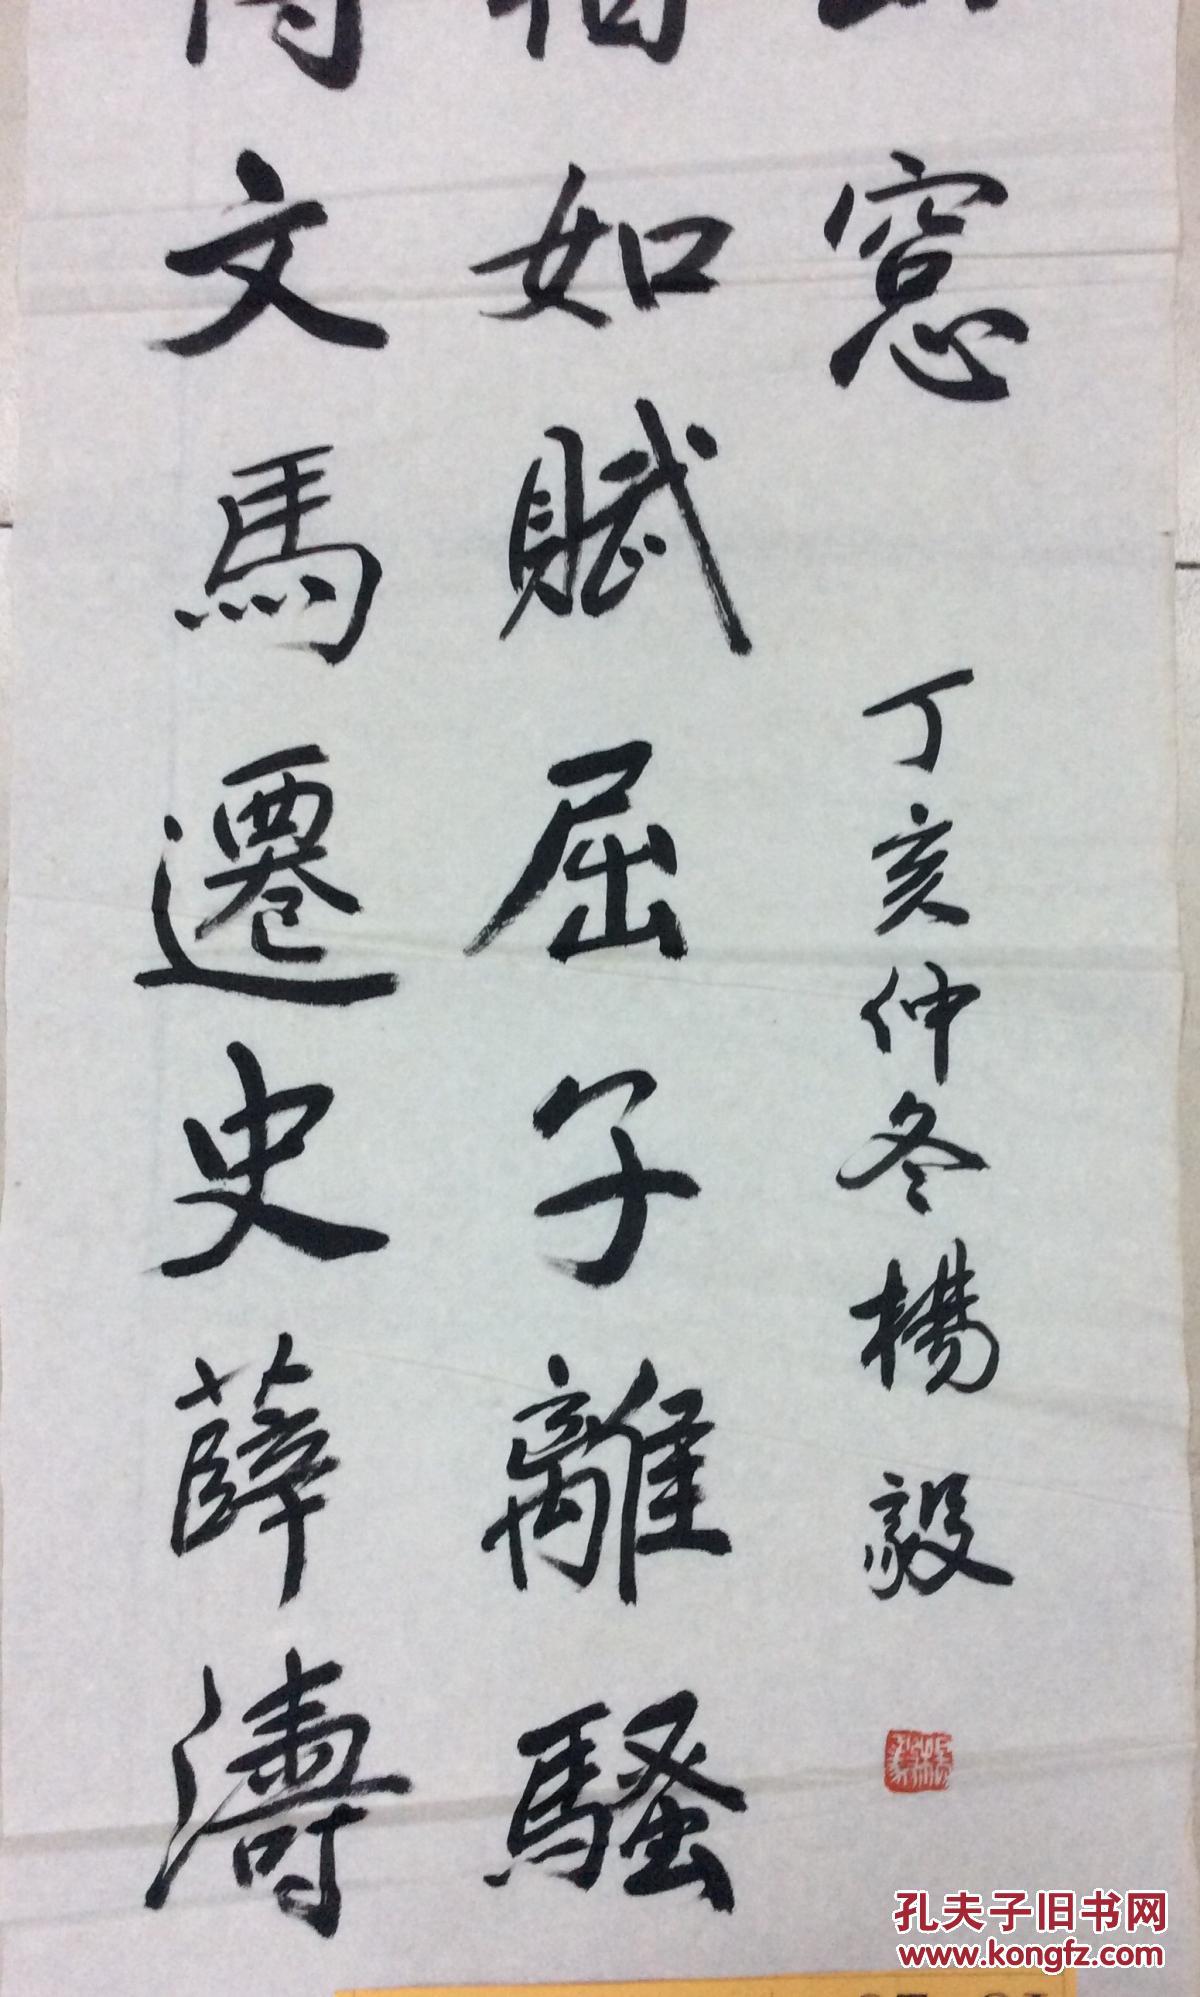 文馬遷史薛濤
如賦屈子離騷
窓
丁亥仲冬楊毅
孔夫子旧书网
www.kongfz.com